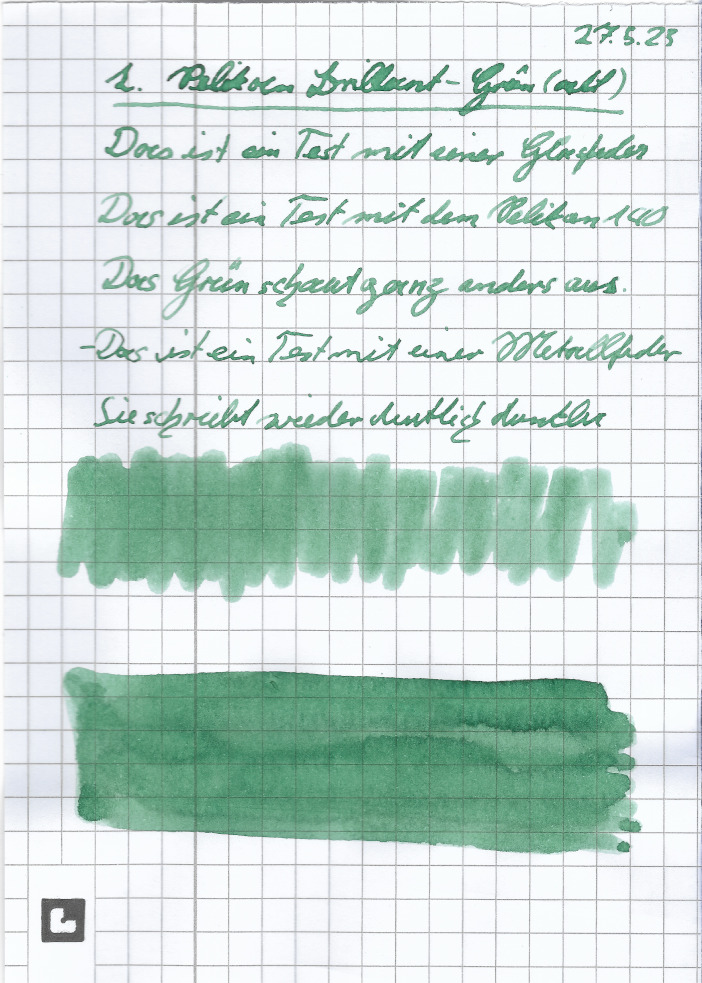 27.5.23
1. Pelikan Brillant-Grün (alt)
Das ist ein Test mit einer Glasfeder
Das ist ein Test mit dem Pelikan 140
Das Grün schaut ganz anders aus.
-Das ist ein Test mit einer Metallfeder
Sie schreibt wieder deutlich dunkler